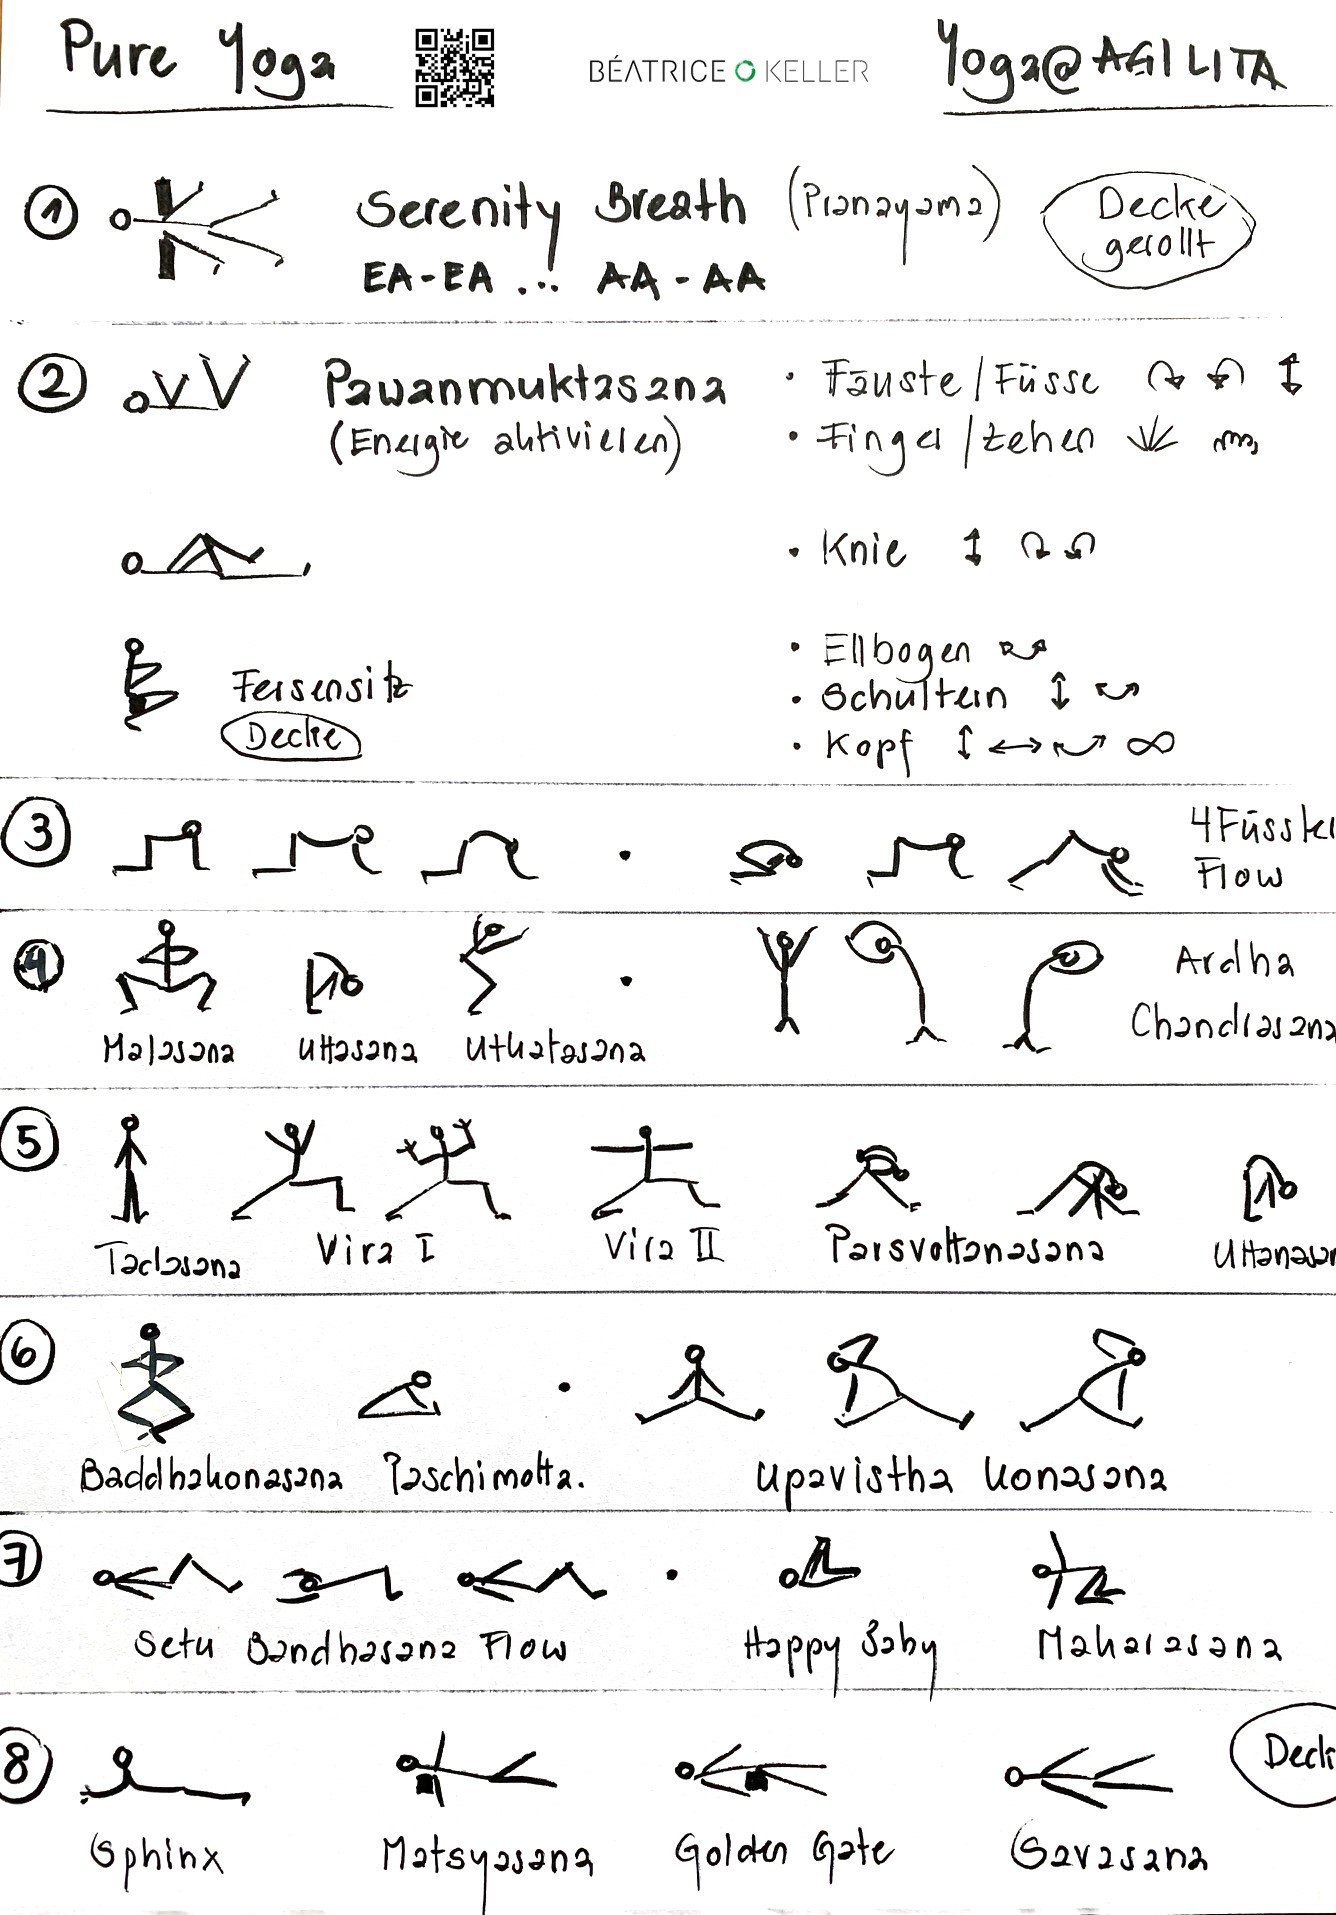 Pure Yoga
BÉATRICE KELLER
Yoga@AGILITA
1 Serenity Breath (Pranayama) Decke gerollt
EA-EA ... AA-AA
2 Pawanmuktasana
(Energie aktivieren)
• Fäuste/Füsse
• Finger/Zehen
• Knie
Fersensitz
Decke
• Ellbogen
• Schultern
• Kopf ∞
3 4Füssler
Flow
4 Ardha
Chandrasana
Malasana Uttasana Utkatasana
5
Tadasana Vira I Vira II Parsvottanasana Uttanasan
6
Baddhakonasana Paschimotta. Upavistha Konasana
7
Setu Bandhasana Flow Happy Baby Makarasana
8 Deck
Sphinx Matsyasana Golden Gate Savasana